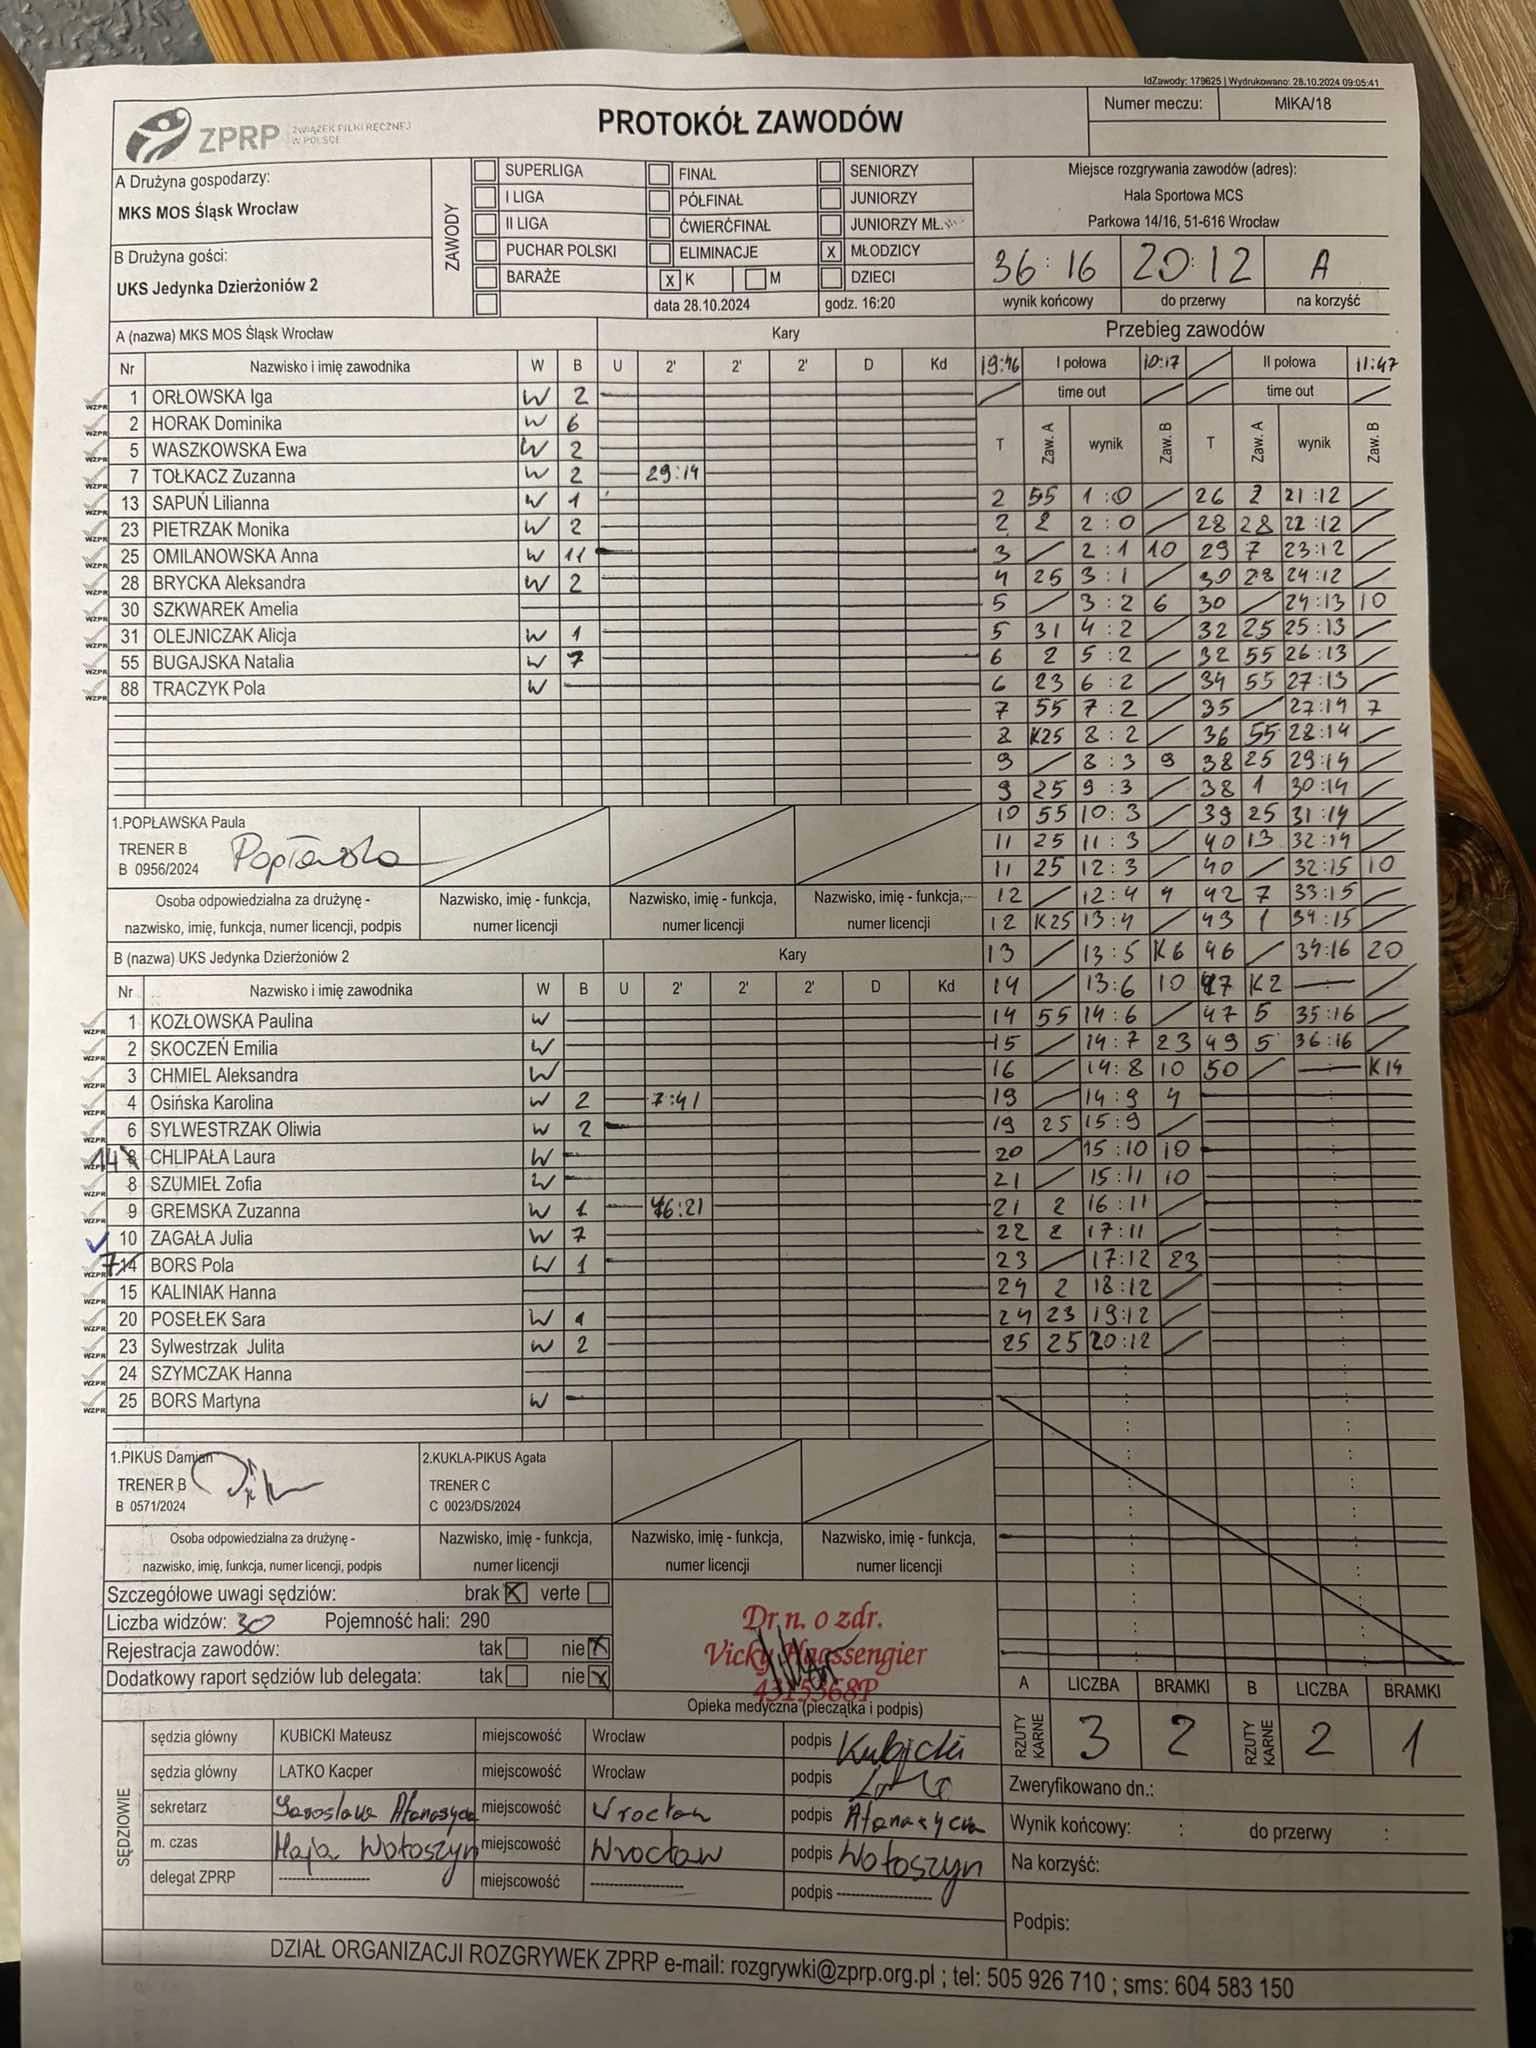 IdZawody: 179625 | Wydrukowano: 28.10.2024 09:05:41
ZPRP ZWIĄZEK PIŁKI RĘCZNEJ W POLSCE
PROTOKÓŁ ZAWODÓW
Numer meczu: MłKA/18
A Drużyna gospodarzy:
MKS MOS Śląsk Wrocław
B Drużyna gości:
UKS Jedynka Dzierżoniów 2
ZAWODY
SUPERLIGA FINAŁ SENIORZY
I LIGA PÓŁFINAŁ JUNIORZY
II LIGA ĆWIERĆFINAŁ JUNIORZY MŁ.
PUCHAR POLSKI ELIMINACJE x MŁODZICY
BARAŻE x K M DZIECI
data 28.10.2024 godz. 16:20
Miejsce rozgrywania zawodów (adres):
Hala Sportowa MCS
Parkowa 14/16, 51-616 Wrocław
36:16 20:12 A
wynik końcowy do przerwy na korzyść
A (nazwa) MKS MOS Śląsk Wrocław Kary
Nr Nazwisko i imię zawodnika W B U 2' 2' 2' D Kd
1 ORŁOWSKA Iga W 2
2 HORAK Dominika W 6
5 WASZKOWSKA Ewa W 2
7 TOŁKACZ Zuzanna W 2 29:14
13 SAPUŃ Lilianna W 1
23 PIETRZAK Monika W 2
25 OMILANOWSKA Anna W 11
28 BRYCKA Aleksandra W 2
30 SZKWAREK Amelia
31 OLEJNICZAK Alicja W 1
55 BUGAJSKA Natalia W 7
88 TRACZYK Pola W
1.POPŁAWSKA Paula
TRENER B
B 0956/2024 Popławska
Osoba odpowiedzialna za drużynę - nazwisko, imię, funkcja, numer licencji, podpis
Nazwisko, imię - funkcja, numer licencji
Nazwisko, imię - funkcja, numer licencji
Nazwisko, imię - funkcja, numer licencji
B (nazwa) UKS Jedynka Dzierżoniów 2 Kary
Nr Nazwisko i imię zawodnika W B U 2' 2' 2' D Kd
1 KOZŁOWSKA Paulina W
2 SKOCZEŃ Emilia W
3 CHMIEL Aleksandra W
4 Osińska Karolina W 2 7:41
6 SYLWESTRZAK Oliwia W 2
14 8 CHLIPAŁA Laura W
8 SZUMIEŁ Zofia W
9 GREMSKA Zuzanna W 1 46:21
10 ZAGAŁA Julia W 7
7 14 BORS Pola W 1
15 KALINIAK Hanna
20 POSEŁEK Sara W 1
23 Sylwestrzak Julita W 2
24 SZYMCZAK Hanna
25 BORS Martyna W
1.PIKUS Damian
TRENER B
B 0571/2024
2.KUKLA-PIKUS Agata
TRENER C
C 0023/DS/2024
Osoba odpowiedzialna za drużynę - nazwisko, imię, funkcja, numer licencji, podpis
Nazwisko, imię - funkcja, numer licencji
Nazwisko, imię - funkcja, numer licencji
Nazwisko, imię - funkcja, numer licencji
Przebieg zawodów
19:46 I połowa 10:17 II połowa 11:47
time out time out
T Zaw. A wynik Zaw. B T Zaw. A wynik Zaw. B
2 55 1:0 26 2 21:12
2 2 2:0 28 28 22:12
3 2:1 10 29 7 23:12
4 25 3:1 30 28 24:12
5 3:2 6 30 24:13 10
5 31 4:2 32 25 25:13
6 2 5:2 32 55 26:13
6 23 6:2 34 55 27:13
7 55 7:2 35 27:14 7
8 K25 8:2 36 55 28:14
9 8:3 9 38 25 29:14
9 25 9:3 38 1 30:14
10 55 10:3 39 25 31:14
11 25 11:3 40 13 32:14
11 25 12:3 40 32:15 10
12 12:4 4 42 7 33:15
12 K25 13:4 43 1 34:15
13 13:5 K6 46 34:16 20
14 13:6 10 47 K2
14 55 14:6 47 5 35:16
15 14:7 23 49 5 36:16
16 14:8 10 50 K14
19 14:9 4
19 25 15:9
20 15:10 10
21 15:11 10
21 2 16:11
22 2 17:11
23 17:12 23
24 2 18:12
24 23 19:12
25 25 20:12
Szczegółowe uwagi sędziów: brak x verte
Liczba widzów: 30 Pojemność hali: 290
Rejestracja zawodów: tak nie x
Dodatkowy raport sędziów lub delegata: tak nie x
Dr n. o zdr.
Vicky Haassengier
4315368P
Opieka medyczna (pieczątka i podpis)
A LICZBA BRAMKI B LICZBA BRAMKI
RZUTY KARNE 3 2 RZUTY KARNE 2 1
SĘDZIOWIE
sędzia główny KUBICKI Mateusz miejscowość Wrocław podpis Kubicki
sędzia główny LATKO Kacper miejscowość Wrocław podpis
sekretarz miejscowość Wrocław podpis
m. czas Maja Wołoszyn miejscowość Wrocław podpis Wołoszyn
delegat ZPRP miejscowość podpis
Zweryfikowano dn.:
Wynik końcowy: : do przerwy :
Na korzyść:
Podpis:
DZIAŁ ORGANIZACJI ROZGRYWEK ZPRP e-mail: rozgrywki@zprp.org.pl ; tel: 505 926 710 ; sms: 604 583 150